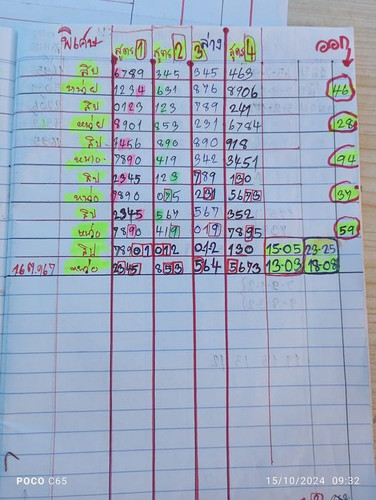 พิเศษ สูตร 1 สูตร 2 3 ล่าง สูตร 4 ออก
สิบ 6789 345 345 463
หน่วย 1234 631 876 8906 46
สิบ 0123 123 789 241
หน่วย 8901 853 231 6784 128
สิบ 3456 890 890 918
หน่วย 7890 419 342 3451 94
สิบ 2345 123 789 130
หน่วย 7890 075 231 5673 37
สิบ 2345 567 567 352
หน่วย 7890 419 019 7895 59
สิบ 78901 012 012 130 15-05 23-25
16 ต.ค.67 หน่วย 2345 853 564 5673 13-03 18-08
POCO C65 15/10/2024 09:32